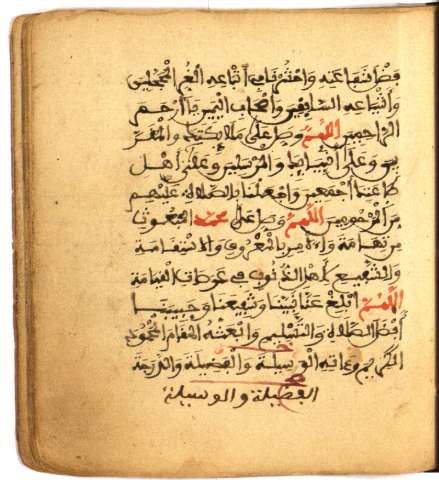 شفاعته واحشرنا في أتباعه الغر المحجلين
وأشياعه السابقين وأصحاب اليمين يا أرحم
الراحمين اللهم وصل على ملائكتك والمقر
بين وعلى أنبيائك والمرسلين وعلى أهل
طاعتك أجمعين واجعلنا بالصلاة عليهم
من المرحومين اللهم وصل على محمد المبعوث
من تهامة والآمر بالمعروف والاستقامة
والشفيع لأهل الذنوب في عرصات القيامة
اللهم أبلغ عنا نبينا وشفيعنا وحبيبنا
أفضل الصلاة والتسليم وابعثه المقام المحمود
الكريم وءاته الوسيلة والفضيلة والدرجة
الفضيلة والوسيلة